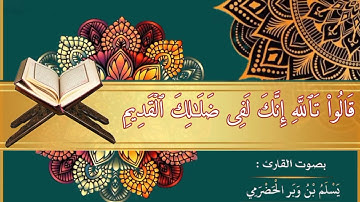 قَالُوا۟ تَٱللَّهِ إِنَّكَ لَفِى ضَلَـٰلِكَ ٱلْقَدِيمِ
بصوت القارئ :
يَسْلَمُ بْنُ وَبَرِ الْحَضْرَمِي